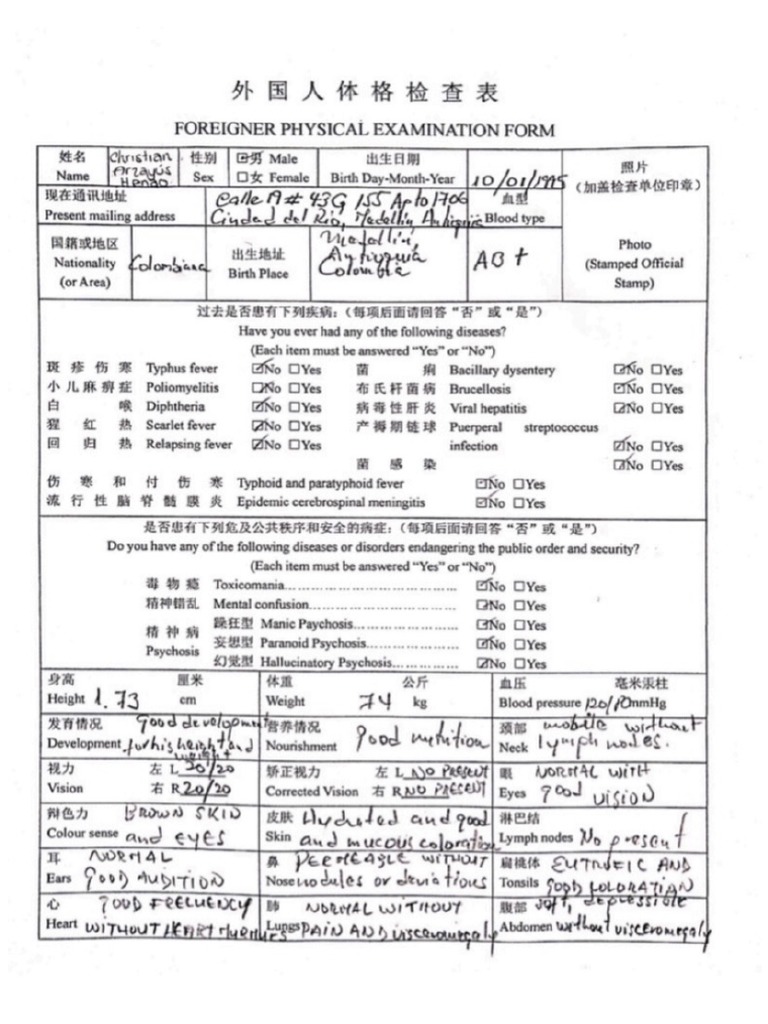 外国人体格检查表
FOREIGNER PHYSICAL EXAMINATION FORM
姓名 Name Christian Arzayus Henao 性别 Sex ☑男 Male ☐女 Female 出生日期 Birth Day-Month-Year 10/01/1995 照片 (加盖检查单位印章)
现在通讯地址 Present mailing address Calle 19 # 43G 155 Apto 1706
Ciudad del Rio, Medellin, Antioquia 血型 Blood type AB+
国籍或地区 Nationality (or Area) Colombiana 出生地址 Birth Place Medellin, Antioquia Colombia Photo (Stamped Official Stamp)
过去是否患有下列疾病:(每项后面请回答“否”或“是”)
Have you ever had any of the following diseases?
(Each item must be answered “Yes” or “No”)
斑疹伤寒 Typhus fever ☑No ☐Yes 菌痢 Bacillary dysentery ☑No ☐Yes
小儿麻痹症 Poliomyelitis ☑No ☐Yes 布氏杆菌病 Brucellosis ☑No ☐Yes
白喉 Diphtheria ☑No ☐Yes 病毒性肝炎 Viral hepatitis ☑No ☐Yes
猩红热 Scarlet fever ☑No ☐Yes 产褥期链球 Puerperal streptococcus
回归热 Relapsing fever ☑No ☐Yes infection ☑No ☐Yes
菌感染 ☑No ☐Yes
伤寒和付伤寒 Typhoid and paratyphoid fever ☑No ☐Yes
流行性脑脊髓膜炎 Epidemic cerebrospinal meningitis ☑No ☐Yes
是否患有下列危及公共秩序和安全的病症:(每项后面请回答“否”或“是”)
Do you have any of the following diseases or disorders endangering the public order and security?
(Each item must be answered “Yes” or “No”)
毒物瘾 Toxicomania ☑No ☐Yes
精神错乱 Mental confusion ☑No ☐Yes
精神病 Psychosis 躁狂型 Manic Paychosis ☑No ☐Yes
妄想型 Paranoid Psychosis ☑No ☐Yes
幻觉型 Hallucinatory Psychosis ☑No ☐Yes
身高 厘米 Height 1.73 cm 体重 公斤 Weight 74 kg 血压 毫米汞柱 Blood pressure 120/80mmHg
发育情况 Development Good development for his height and weight 营养情况 Nourishment good nutrition 颈部 Neck mobile without lymph nodes.
视力 Vision 左 L 20/20 右 R 20/20 矫正视力 Corrected Vision 左 L NO PRESENT 右 R NO PRESENT 眼 Eyes NORMAL WITH good VISION
辩色力 Colour sense BROWN SKIN and EYES 皮肤 Skin Hydrated and good and mucous coloration 淋巴结 Lymph nodes No present
耳 Ears NORMAL GOOD AUDITION 鼻 Nose PERMEABLE WITHOUT nodules or deviations 扁桃体 Tonsils EUTROFIC AND GOOD COLORATIAN
心 Heart GOOD FRECUENCY WITHOUT HEART MURMURES 肺 Lungs NORMAL WITHOUT PAIN AND visceromegaly 腹部 Abdomen soft, depressible without visceromegaly